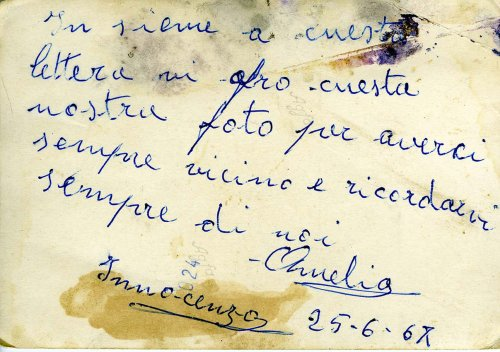 In sieme a cuesta
lettera vi ofro cuesta
nostra foto per averci
sempre vicino e ricordarvi
sempre di noi
Amelia
Innocenza
25-6-67